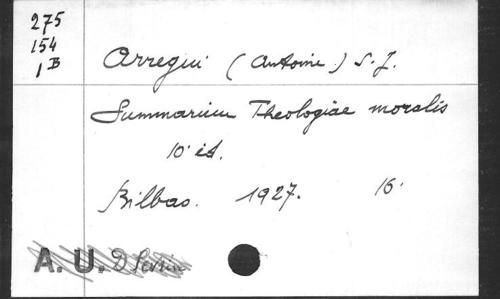 275
154
1 B
Arregui (Antoine) S. J.
Summarium Theologiae moralis
10ᵉ éd.
Bilbao. 1927. 16°
A. U. D